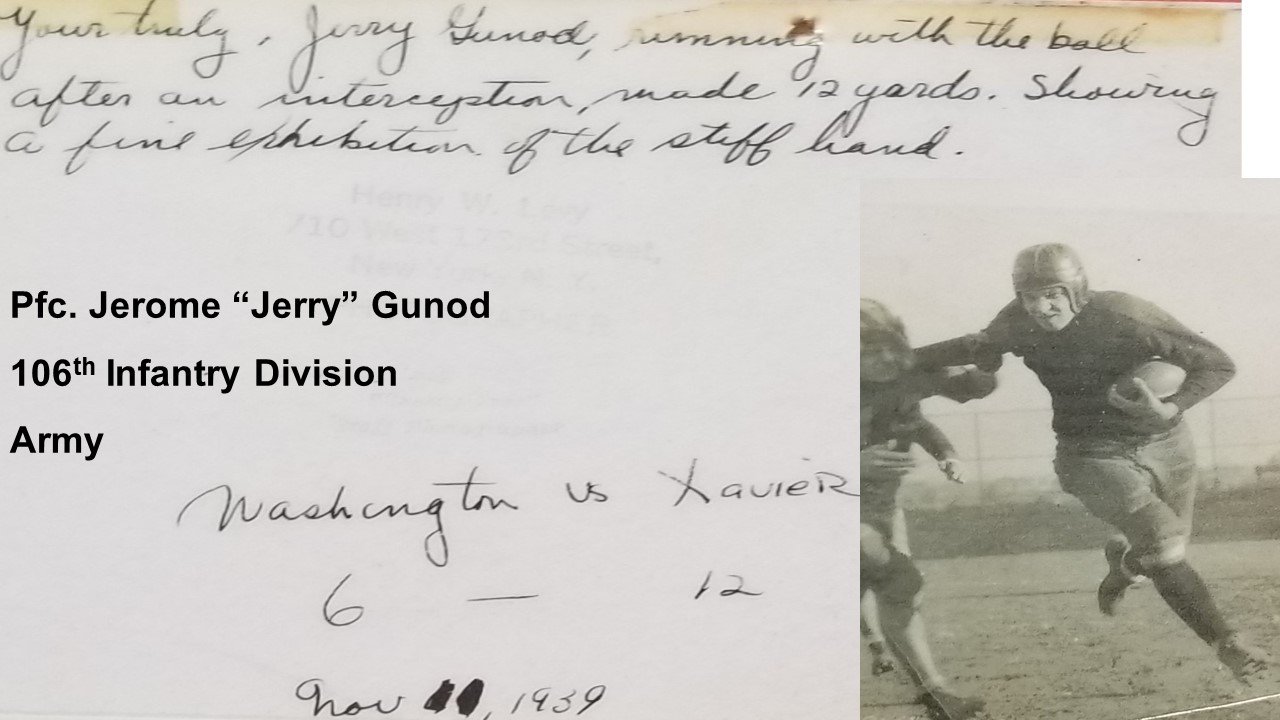 Your truly, Jerry Gunod, running with the ball
after an interception, made 12 yards. Showing
a fine exhibition of the stiff hand.
Henry W. Levy
710 West 173rd Street,
New York, N. Y.
Pfc. Jerome “Jerry” Gunod
106th Infantry Division
Army
Washington vs Xavier
6 — 12
Nov , 1939